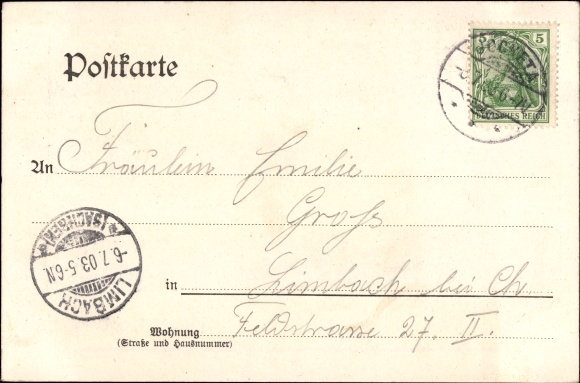 Postkarte
5
DEUTSCHES REICH
An Fräulein Emilie
Gross
in Limbach bei Ch
Wohnung Feldstrasse 27. II.
(Straße und Hausnummer)
(SACHSEN)
-6.7.03.5-6N.
LIMBACH